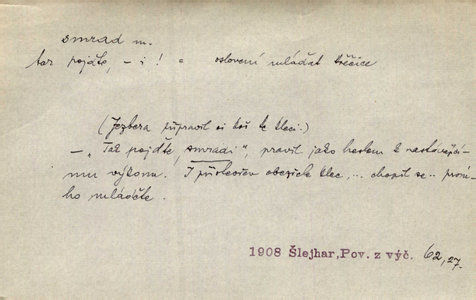 smrad m.
tax pojďte, – i! = oslovení mláďat křečice
(Jezbera připravil si koš ke kleci.)
– „Tak pojďte, smradi“, pravil jako heslem k nastávajícímu výkonu. I přistoviv obezřele klec, ... chopil se .. prvního mláděte.
1908 Šlejhar, Pov. z výč. 62,27.